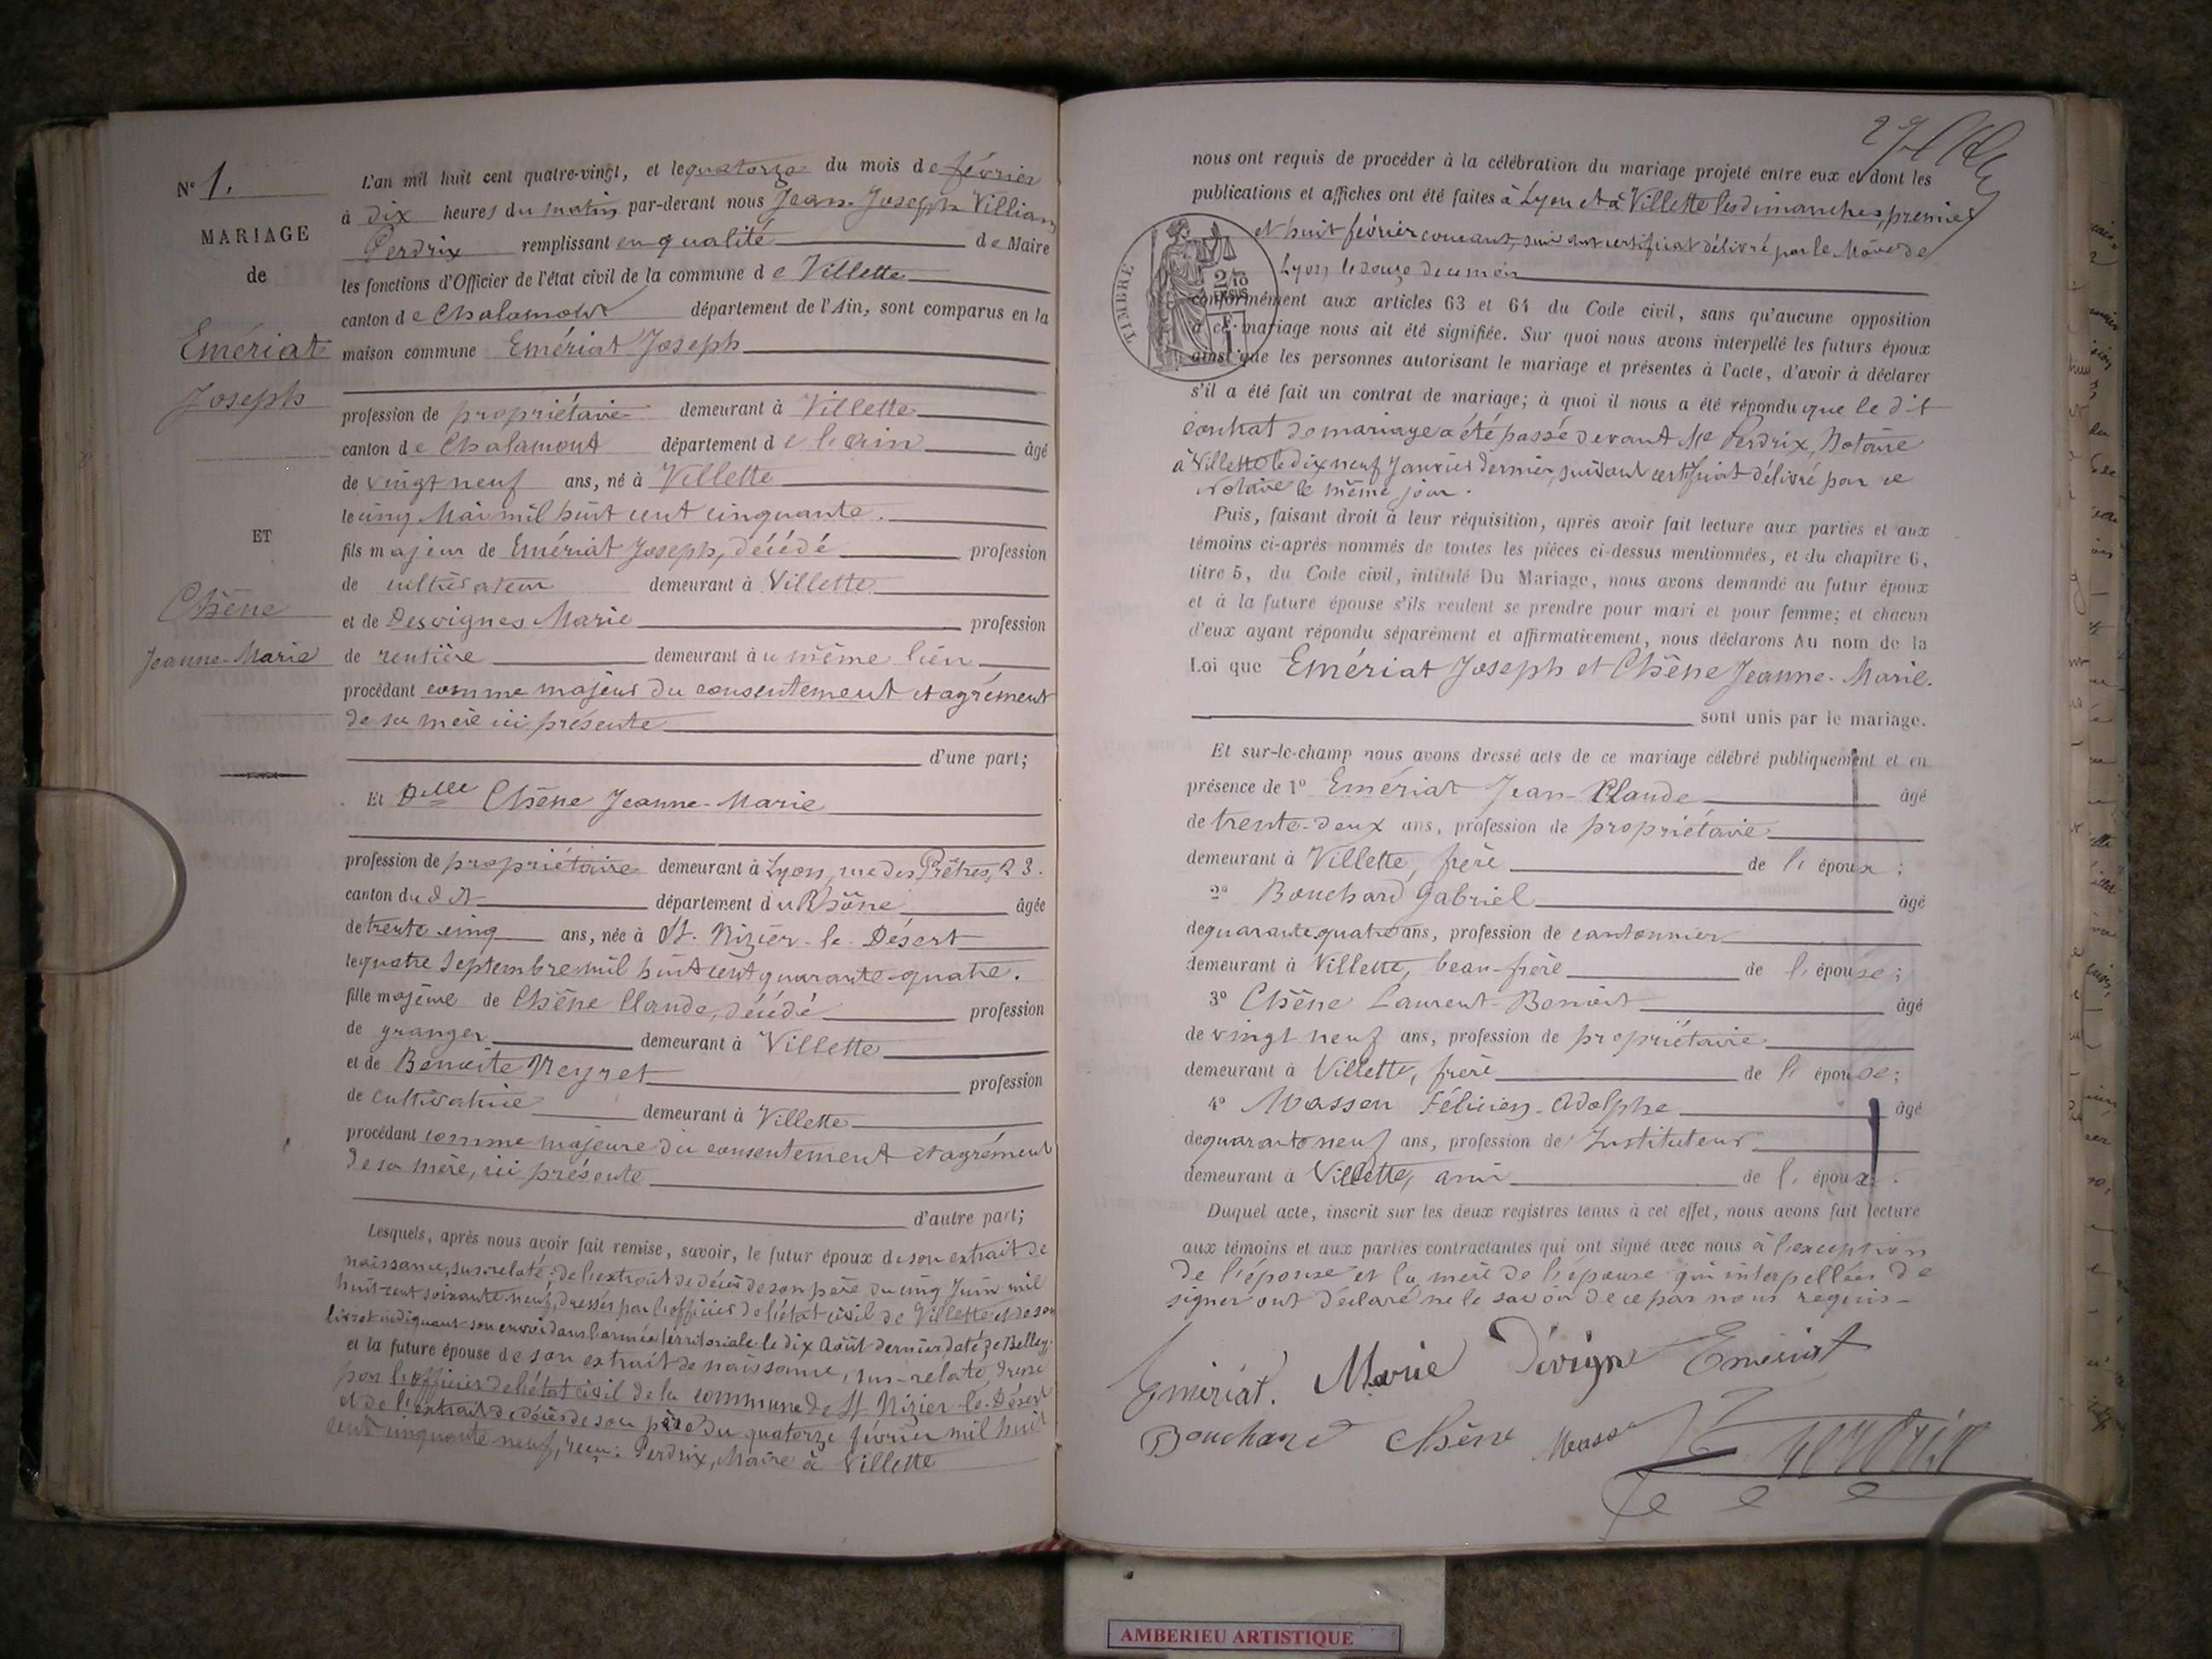 N° 1.
MARIAGE
de
Emériat
Joseph
ET
Chêne
Jeanne-Marie
L'an mil huit cent quatre-vingt, et le quatorze du mois de février
à dix heures du matin par-devant nous Jean-Joseph Villian
Perdrix remplissant en qualité de Maire
les fonctions d'Officier de l'état civil de la commune de Villette
canton de Chalamont département de l'Ain, sont comparus en la
maison commune Emériat Joseph
profession de propriétaire demeurant à Villette
canton de Chalamont département de l'ain âgé
de vingt neuf ans, né à Villette
le cinq Mai mil huit cent cinquante.
fils majeur de Emériat Joseph, décédé profession
de cultivateur demeurant à Villette
et de Desvignes Marie profession
de rentière demeurant au même lieu
procédant comme majeur du consentement et agrément
de sa mère ici présente
d'une part;
Et Delle Chêne Jeanne-Marie
profession de propriétaire demeurant à Lyon, rue des Prêtres, 23.
canton du dit département du Rhône âgée
de trente cinq ans, née à St. Nizier-le-Désert
le quatre Septembre mil huit cent quarante-quatre.
fille majeure de Chêne Claude, décédé profession
de granger demeurant à Villette
et de Benoite Neyret profession
de cultivatrice demeurant à Villette
procédant comme majeure du consentement et agrément
de sa mère, ici présente
d'autre part;
Lesquels, après nous avoir fait remise, savoir, le futur époux de son extrait de
naissance, sus-relaté; de l'extrait de décès de son père du cinq Juin mil
huit-cent soixante-neuf, dressés par l'officier de l'état civil de Villette et de son
livret indiquant son envoi dans l'armée territoriale le dix Août dernier daté de Belley.
et la future épouse de son extrait de naissance, sus-relaté, dressé
par l'officier de l'état civil de la commune de St. Nizier-le-Désert
et de l'extrait de décès de son père du quatorze février mil huit
cent cinquante neuf, reçu: Perdrix, Maire à Villette
nous ont requis de procéder à la célébration du mariage projeté entre eux et dont les
publications et affiches ont été faites à Lyon et à Villette les dimanches, premier
et huit février courant, suivant certificat délivré par le Maire de
Lyon le douze du même
TIMBRE
2/10
EN SUS
conformément aux articles 63 et 64 du Code civil, sans qu'aucune opposition
à ce mariage nous ait été signifiée. Sur quoi nous avons interpellé les futurs époux
ainsi que les personnes autorisant le mariage et présentes à l'acte, d'avoir à déclarer
s'il a été fait un contrat de mariage; à quoi il nous a été répondu que le dit
contrat de mariage a été passé devant Me Perdrix, Notaire
à Villette le dix neuf Janvier dernier, suivant certificat délivré par ce
Notaire le même jour.
Puis, faisant droit à leur réquisition, après avoir fait lecture aux parties et aux
témoins ci-après nommés de toutes les pièces ci-dessus mentionnées, et du chapitre 6,
titre 5, du Code civil, intitulé Du Mariage, nous avons demandé au futur époux
et à la future épouse s'ils veulent se prendre pour mari et pour femme; et chacun
d'eux ayant répondu séparément et affirmativement, nous déclarons Au nom de la
Loi que Emériat Joseph et Chêne Jeanne-Marie.
sont unis par le mariage.
Et sur-le-champ nous avons dressé acte de ce mariage célébré publiquement et en
présence de 1° Emériat Jean-Claude âgé
de trente-deux ans, profession de propriétaire
demeurant à Villette, frère de l'époux;
2° Bouchard Gabriel âgé
de quarante quatre ans, profession de cantonnier
demeurant à Villette, beau-frère de l'épouse;
3° Chêne Laurent-Benoit âgé
de vingt neuf ans, profession de propriétaire
demeurant à Villette, frère de l'épouse;
4° Masson Félicien-Adolphe âgé
de quarante neuf ans, profession de Instituteur
demeurant à Villette, ami de l'époux.
Duquel acte, inscrit sur les deux registres tenus à cet effet, nous avons fait lecture
aux témoins et aux parties contractantes qui ont signé avec nous à l'exception
de l'épouse et la mère de l'épouse qui interpellées de
signer ont déclaré ne le savoir de ce par nous requis-
Emériat. Marie Dévigne Emeriat
Bouchard Chêne Masson Perdrix
AMBERIEU ARTISTIQUE